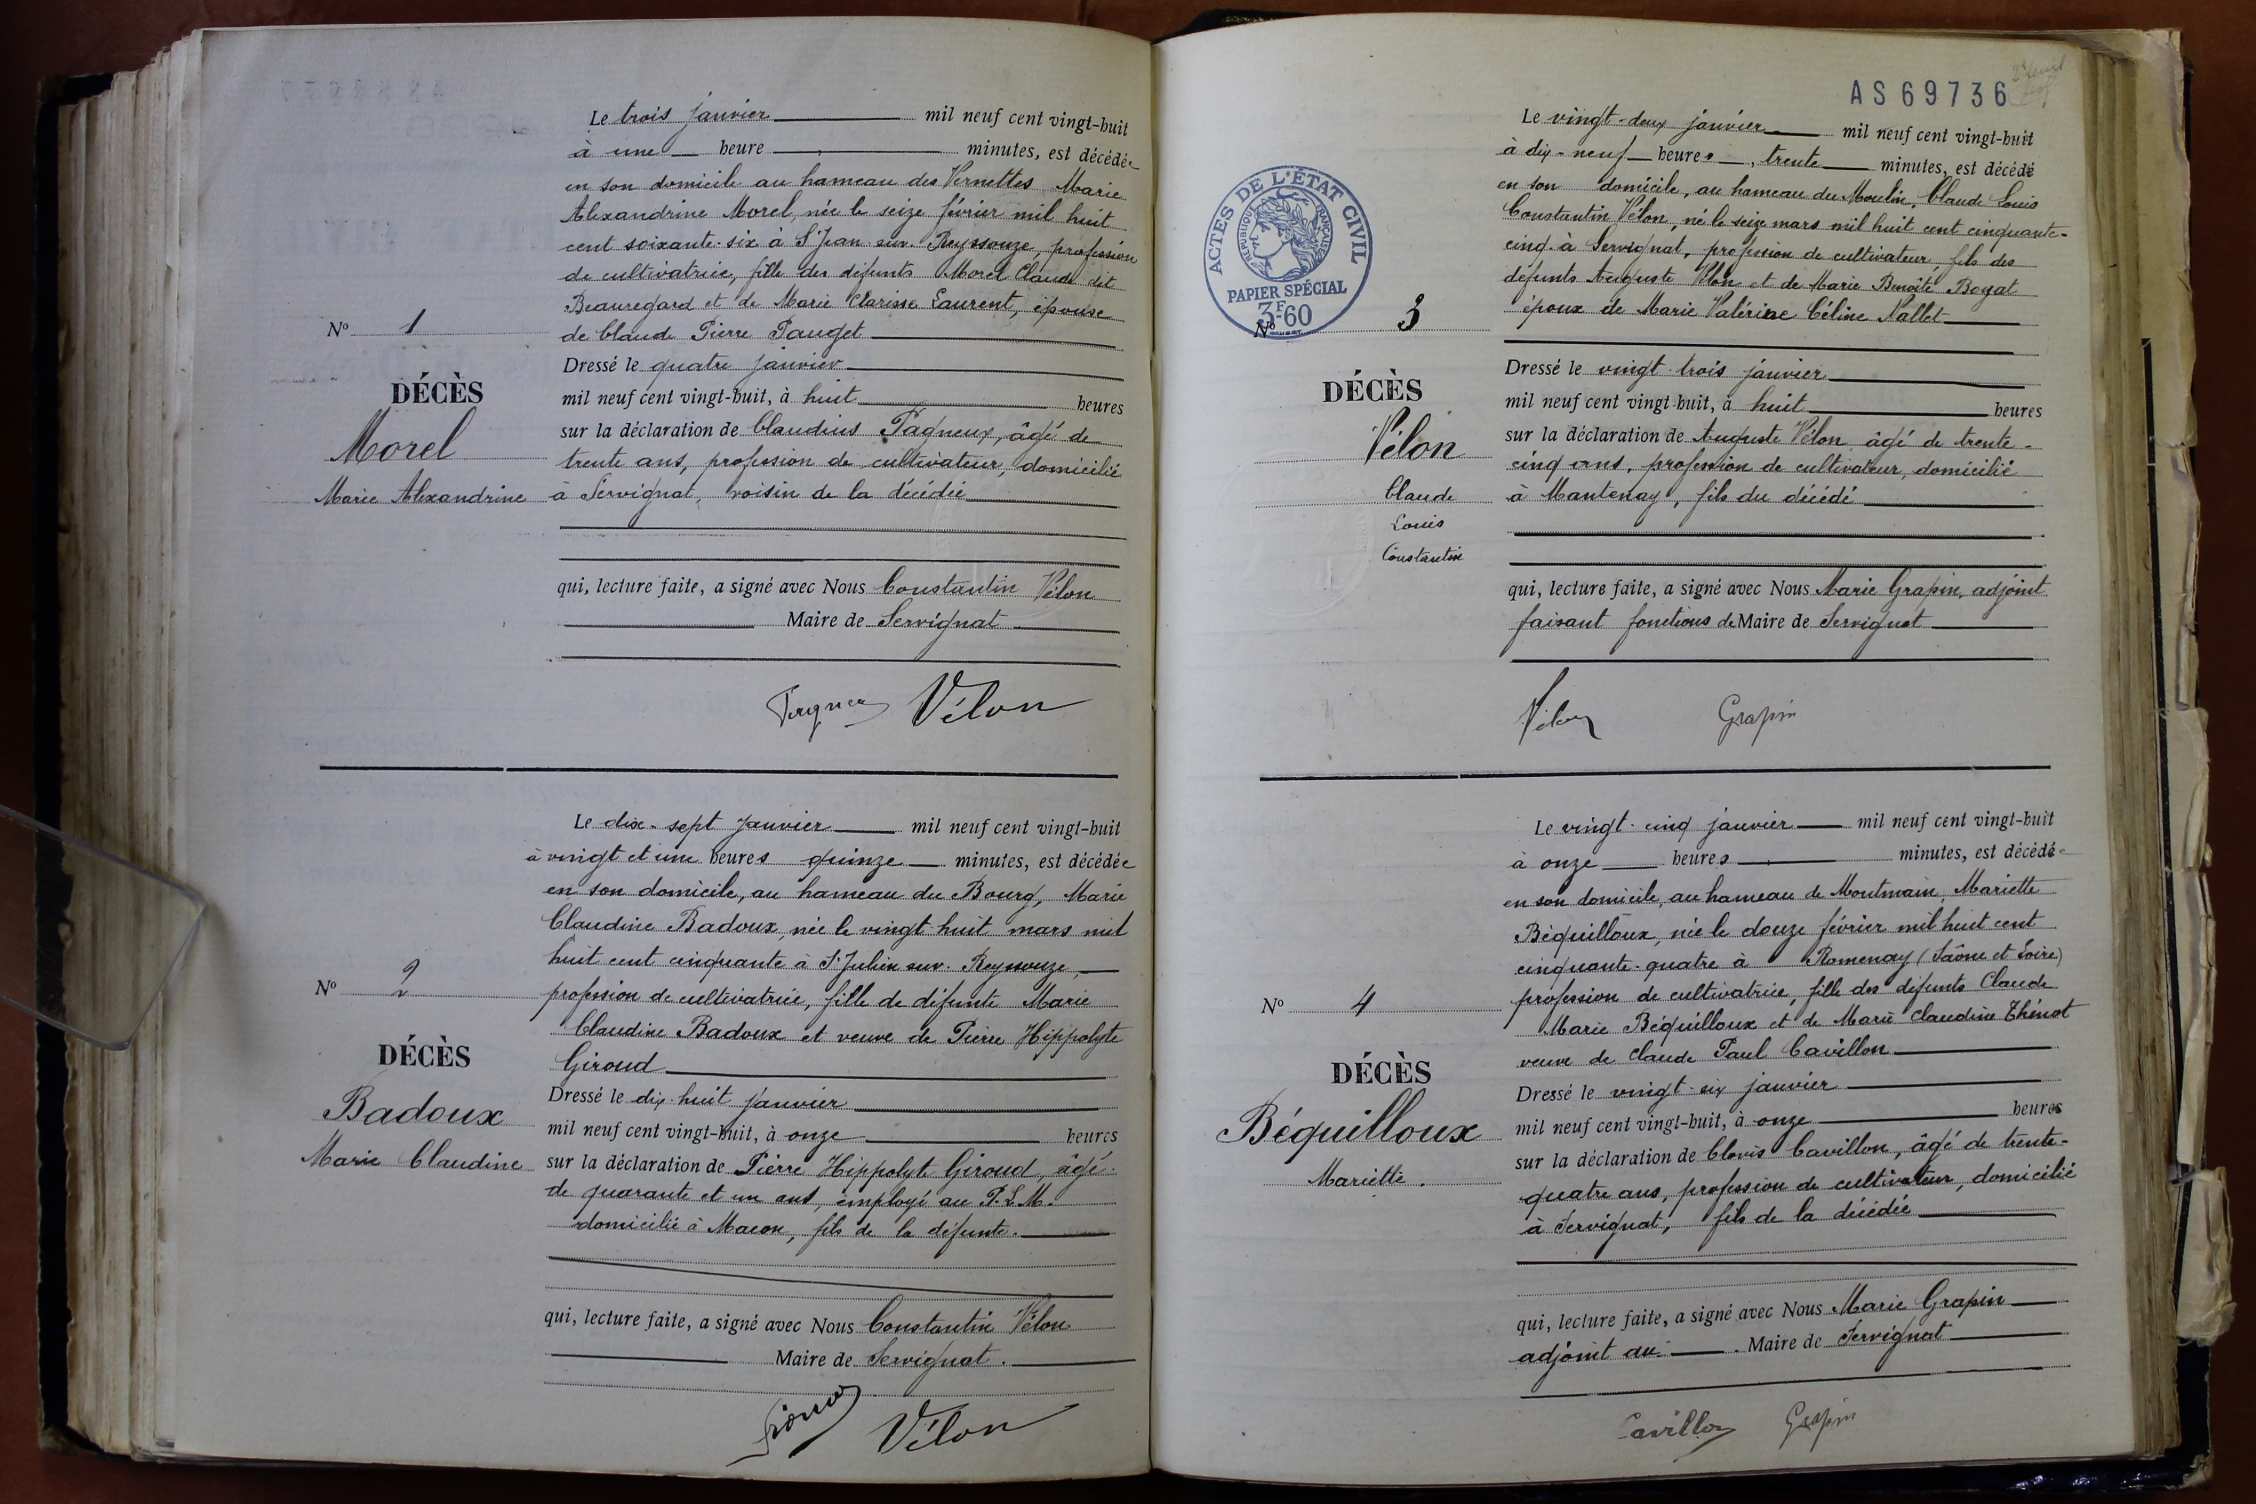 Le trois janvier mil neuf cent vingt-huit
à une heure , minutes, est décédée
en son domicile au hameau des Vernettes Marie
Alexandrine Morel, née le seize février mil huit
cent soixante-six à St Jean sur Reyssouze, profession
de cultivatrice, fille des défunts Morel Claude dit
Beauregard et de Marie Clarisse Laurent, épouse
de Claude Pierre Pauget
No 1
Dressé le quatre janvier
DÉCÈS
mil neuf cent vingt-huit, à huit heures
Morel
sur la déclaration de Claudius Pagneux, âgé de
trente ans, profession de cultivateur, domicilié
Marie Alexandrine
à Servignat, voisin de la décédée
qui, lecture faite, a signé avec Nous Constantin Vélon
Maire de Servignat
Vélon
Le dix-sept janvier mil neuf cent vingt-huit
à vingt et une heures quinze minutes, est décédée
en son domicile, au hameau du Bourg, Marie
Claudine Badoux, née le vingt-huit mars mil
huit cent cinquante à St Julien sur Reyssouze,
No 2
profession de cultivatrice, fille de défunte Marie
Claudine Badoux et veuve de Pierre Hippolyte
Giroud
DÉCÈS
Dressé le dix-huit janvier
Badoux
mil neuf cent vingt-huit, à onze heures
Marie Claudine
sur la déclaration de Pierre Hippolyte Giroud, âgé
de quarante et un ans, employé au P.L.M.
domicilié à Macon, fils de la défunte.
qui, lecture faite, a signé avec Nous Constantin Vélon
Maire de Servignat.
Vélon
AS69736
Le vingt-deux janvier mil neuf cent vingt-huit
à dix-neuf heures, trente minutes, est décédé
en son domicile, au hameau du Moulin, Claude Louis
Constantin Vélon, né le seize mars mil huit cent cinquante-
cinq à Servignat, profession de cultivateur, fils des
défunts Auguste Vélon et de Marie Benoîte Boyat
époux de Marie Valérine Céline Nallet
ACTES DE L'ÉTAT CIVIL
RÉPUBLIQUE FRANÇAISE
PAPIER SPÉCIAL
3F60
No 3
DÉCÈS
Vélon
Claude
Louis
Constantin
Dressé le vingt-trois janvier
mil neuf cent vingt-huit, à huit heures
sur la déclaration de Auguste Vélon âgé de trente-
cinq ans, profession de cultivateur, domicilié
à Mantenay, fils du décédé
qui, lecture faite, a signé avec Nous Marie Grapin, adjoint
faisant fonctions de Maire de Servignat
Vélon Grapin
Le vingt-cinq janvier mil neuf cent vingt-huit
à onze heures , minutes, est décédée
en son domicile, au hameau de Montmain, Mariette
Béquilloux, née le douze février mil huit cent
cinquante-quatre à Romenay (Saône et Loire)
No 4
profession de cultivatrice, fille des défunts Claude
Marie Béquilloux et de Marie Claudine Thénot
veuve de Claude Paul Cavillon
DÉCÈS
Dressé le vingt-six janvier
Béquilloux
mil neuf cent vingt-huit, à onze heures
Mariette.
sur la déclaration de Clovis Cavillon, âgé de trente-
quatre ans, profession de cultivateur, domicilié
à Servignat, fils de la décédée
qui, lecture faite, a signé avec Nous Marie Grapin
adjoint au Maire de Servignat
Cavillon Grapin